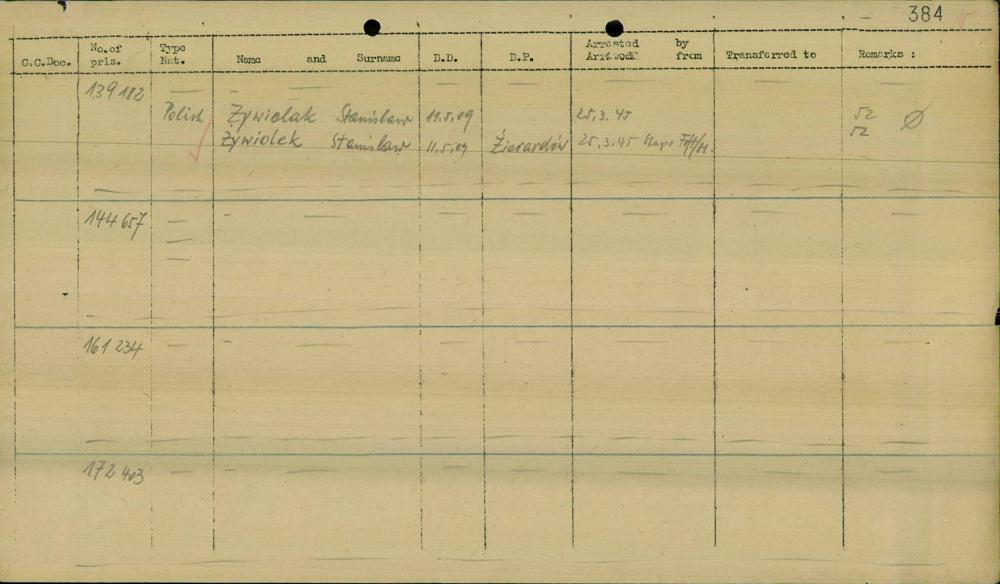 384
C.C.Doc. No.of pris. Type Nat. Name and Surname B.D. B.P. Arrested by from Transferred to Remarks :
139 182 — — — — — — — —
Polish Zywielak Stanislaw 19.5.09 25.3.45 52 Ø
Żywiolek Stanislaw 11.5.09 25.3.45 52
144 657 — - — — — — — —
—
—
161 234 — - — — — — — —
172 403 — - — — — — — —